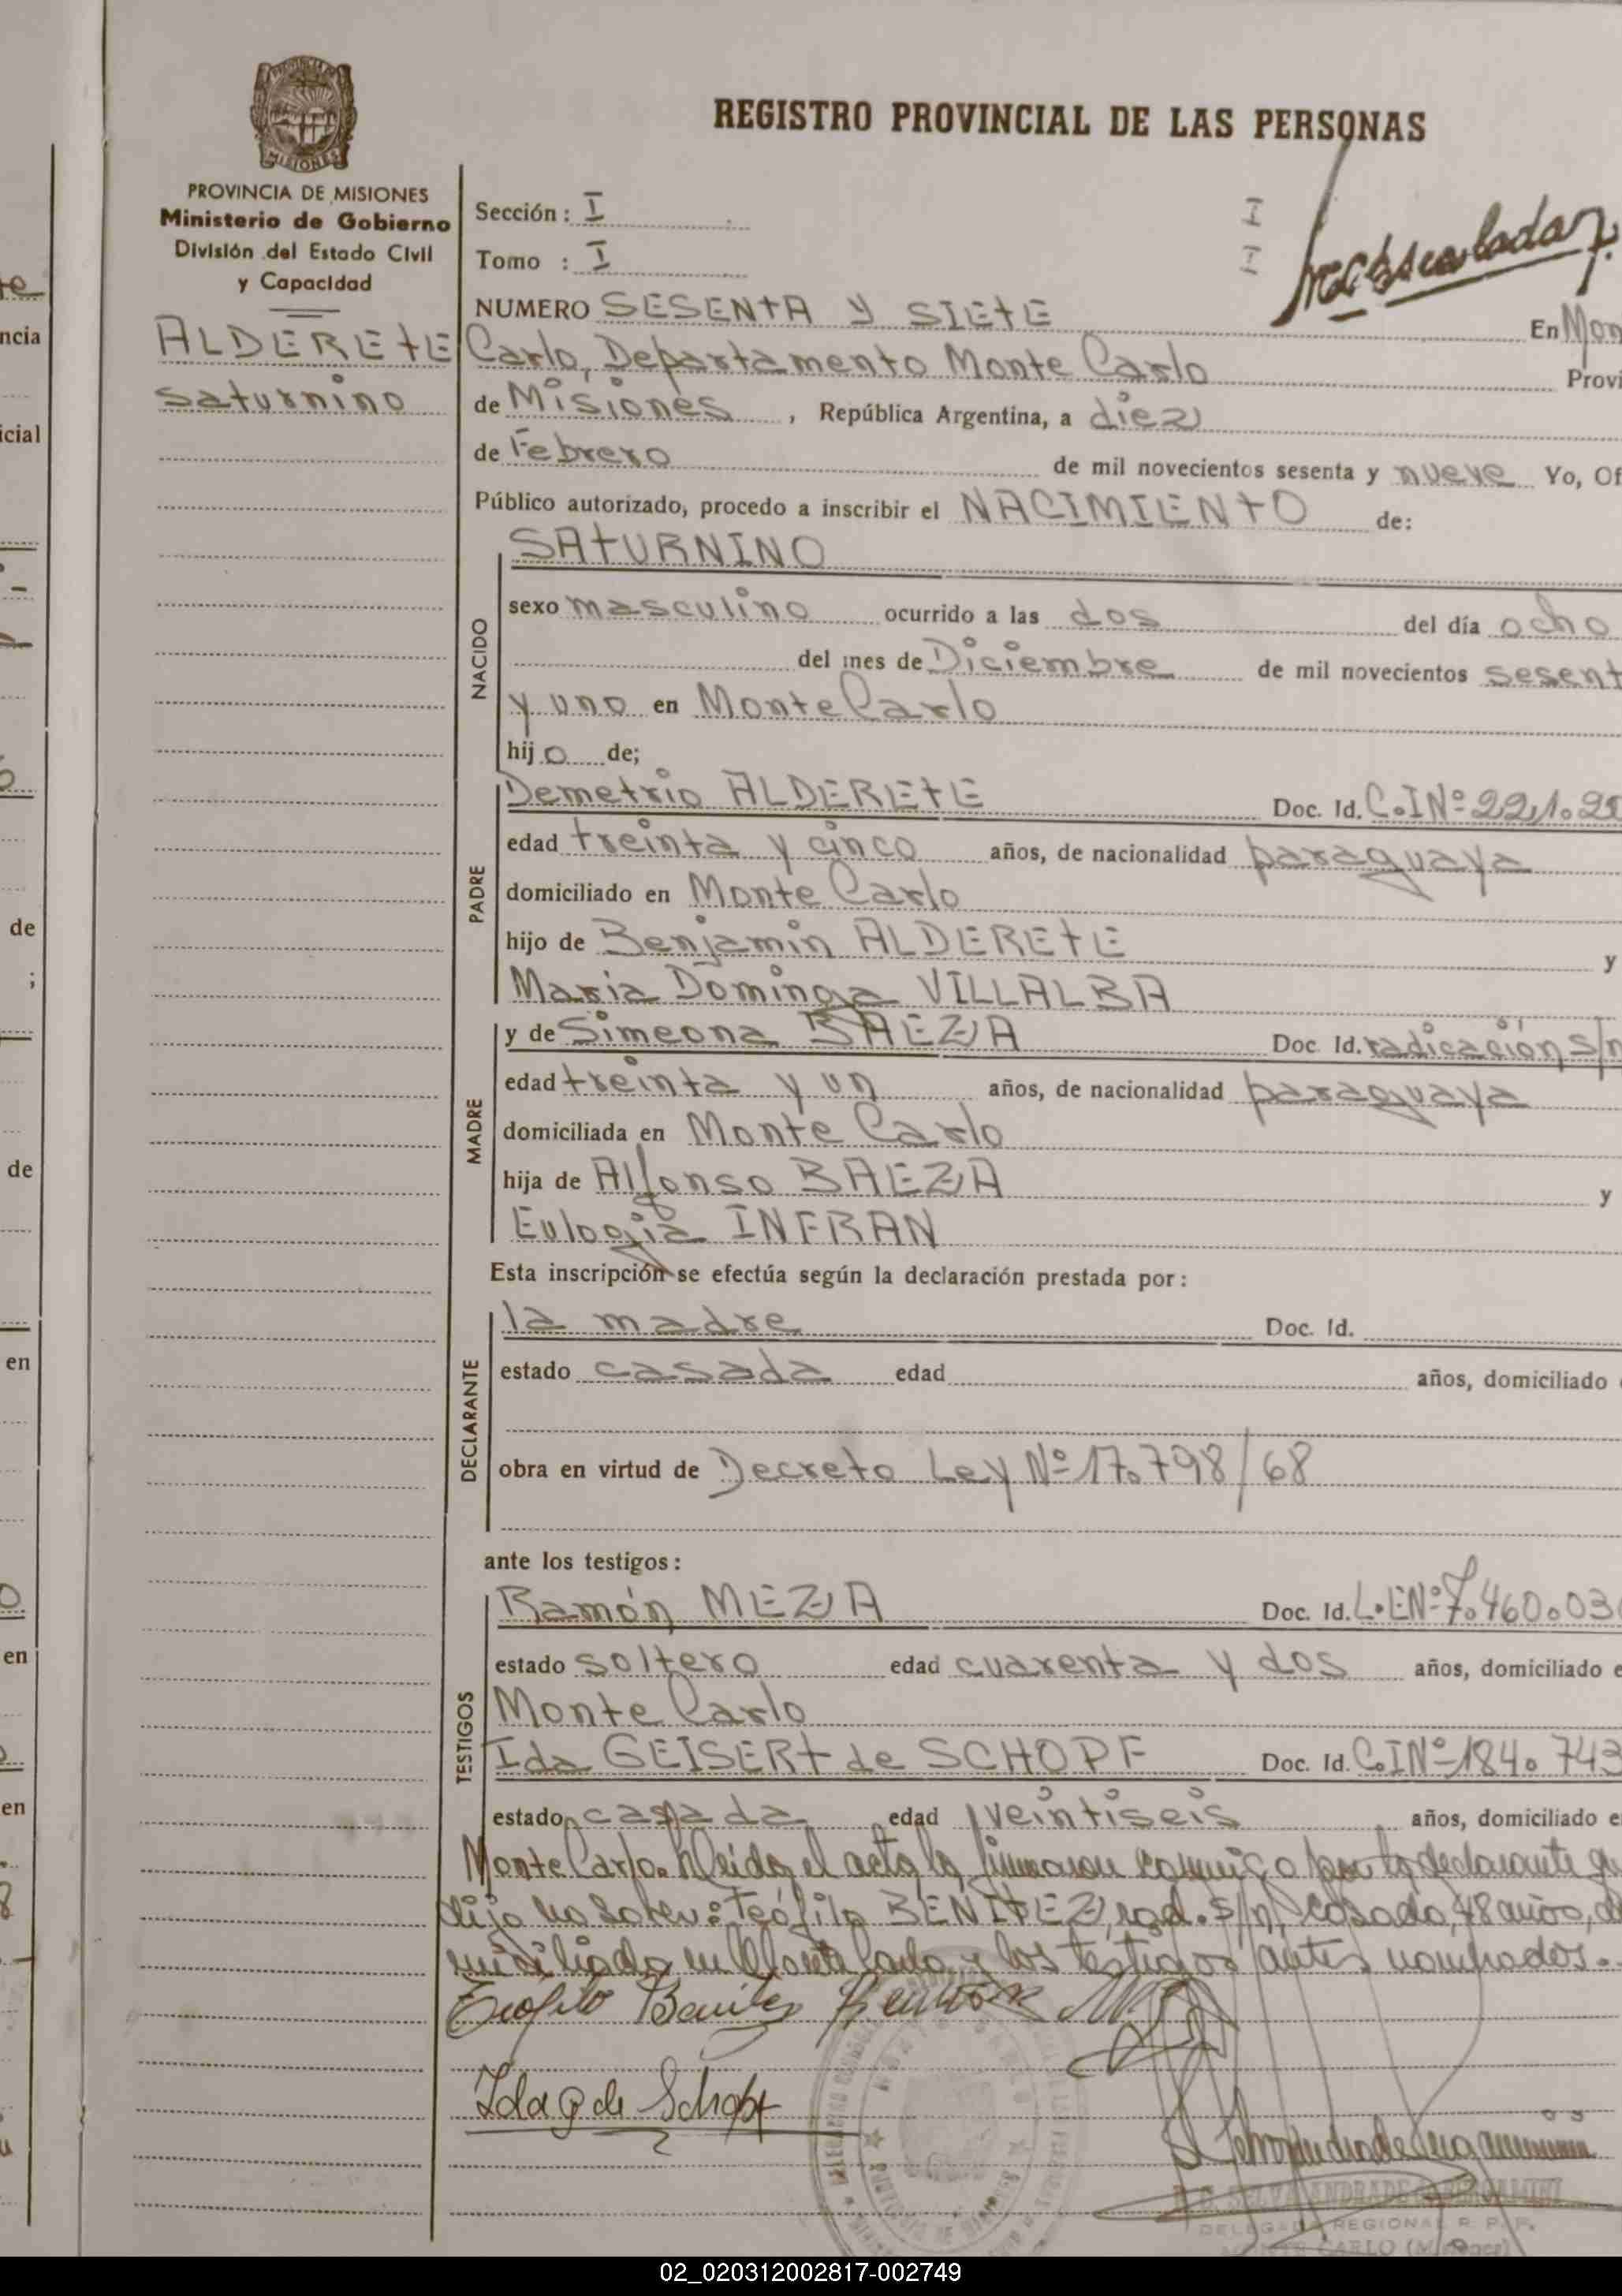 REGISTRO PROVINCIAL DE LAS PERSONAS
PROVINCIA DE MISIONES
Ministerio de Gobierno
División del Estado Civil
y Capacidad
ALDERETE
Saturnino
Sección: I
Tomo : I
I
I
NUMERO SESENTA Y SIETE
En Mon
Carlo, Departamento Monte Carlo Provi
de Misiones, República Argentina, a diez
de Febrero de mil novecientos sesenta y nueve Yo, Of
Público autorizado, procedo a inscribir el NACIMIENTO de:
NACIDO
SATURNINO
sexo masculino ocurrido a las dos del día ocho
del mes de Diciembre de mil novecientos sesent
y uno en Monte Carlo
hijo de;
PADRE
Demetrio ALDERETE Doc. Id. C.I Nº 221.
edad treinta y cinco años, de nacionalidad paraguaya
domiciliado en Monte Carlo
hijo de Benjamin ALDERETE y
Maria Dominga VILLALBA
MADRE
y de Simeona BAEZA Doc. Id. radicación s/n
edad treinta y un años, de nacionalidad paraguaya
domiciliada en Monte Carlo
hija de Alfonso BAEZA y
Eulogia INFRAN
Esta inscripción se efectúa según la declaración prestada por:
DECLARANTE
la madre Doc. Id.
estado casada edad años, domiciliado
obra en virtud de Decreto Ley Nº 17.798/68
ante los testigos:
TESTIGOS
Ramón MEZA Doc. Id. L.E Nº 7.460.03
estado soltero edad cuarenta y dos años, domiciliado e
Monte Carlo
Ida GEISERT de SCHOPF Doc. Id. C.I Nº 184.743
estado casada edad veintiseis años, domiciliado e
Monte Carlo. Leida el acta la firmaron conmigo por la declarante q
dijo no saber: Teófilo BENITEZ, rad. s/n, casado, 48 años, d
miciliado en Monte Carlo y los testigos antes nombrados.
Teofilo Benitez
Ida G de Schopf
DELEGADA REGIONAL R. P. P.
MONTE CARLO (Misiones)
de
;
de
en
en
en
ncia
icial
02_020312002817-002749